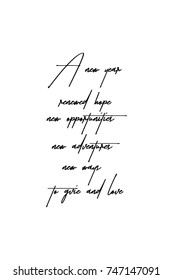 A new year
renewed hope
new opportunities
new adventures
new ways
to give and love
www.shutterstock.com · 747147091